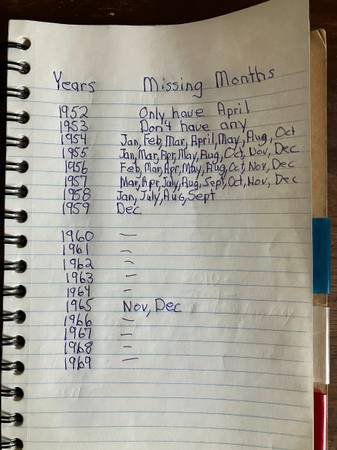 Years Missing Months
1952 Only have April
1953 Don't have any
1954 Jan, Feb, Mar, April, May, Aug, Oct
1955 Jan, Mar, Apr, May, Aug, Oct, Nov, Dec
1956 Feb, Mar, Apr, May, Aug, Oct, Nov, Dec
1957 Mar, Apr, July, Aug, Sept, Oct, Nov, Dec
1958 Jan, July, Aug, Sept
1959 Dec
1960 —
1961 —
1962 —
1963 —
1964 —
1965 Nov, Dec
1966 —
1967 —
1968 —
1969 —